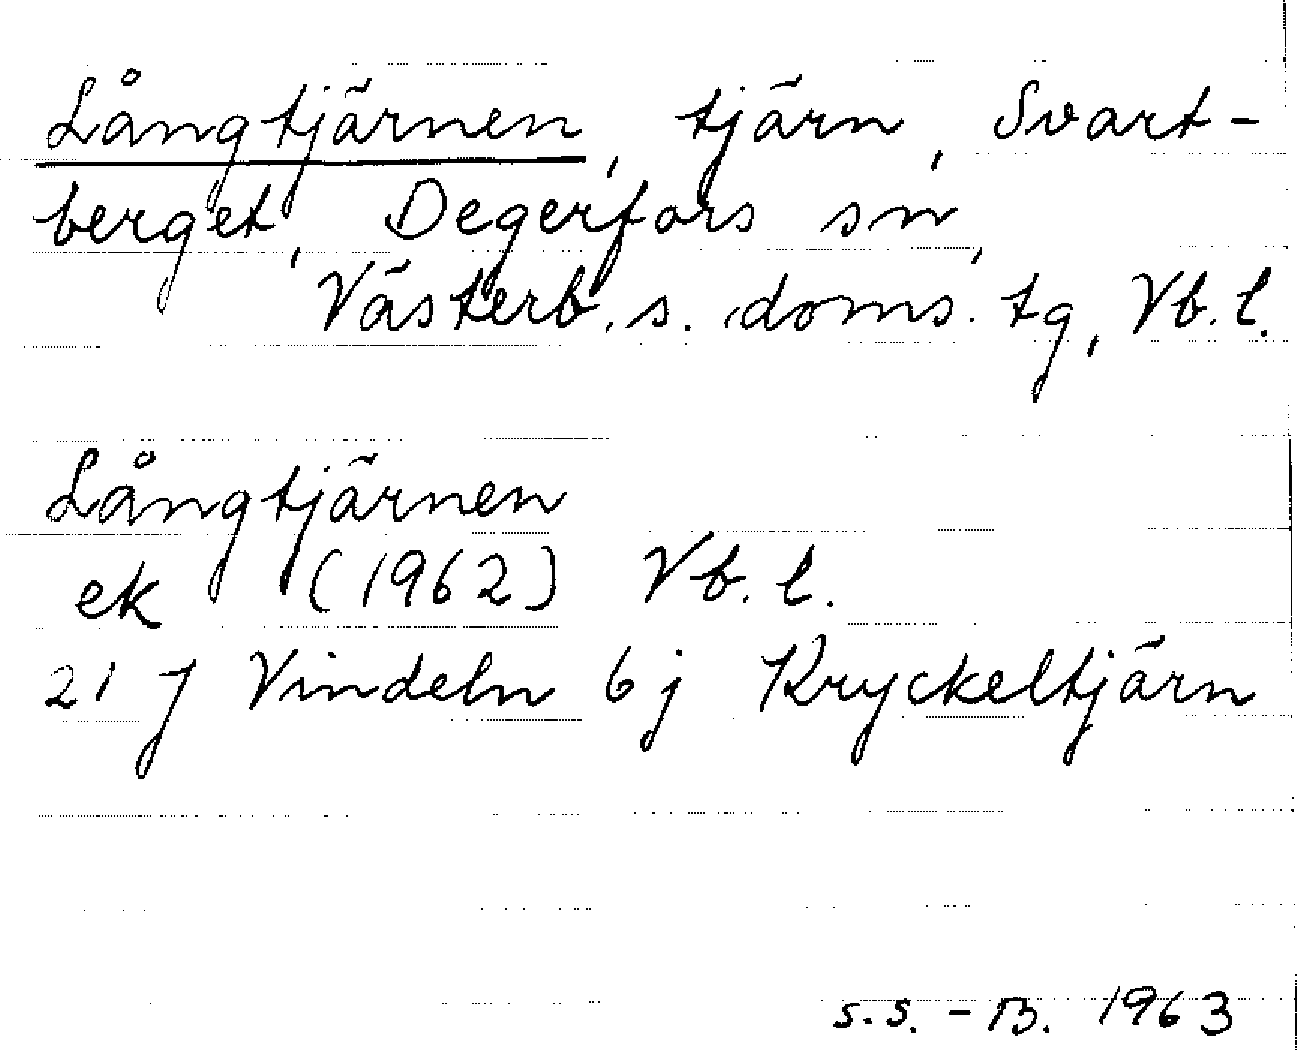 Långtjärnen, tjärn, Svart-
berget, Degerfors sn,
Västerb. s. doms. tg, Vb. l.
Långtjärnen
ek (1962) Vb. l.
21 J Vindeln 6 j Kryckeltjärn
s.s. - B. 1963